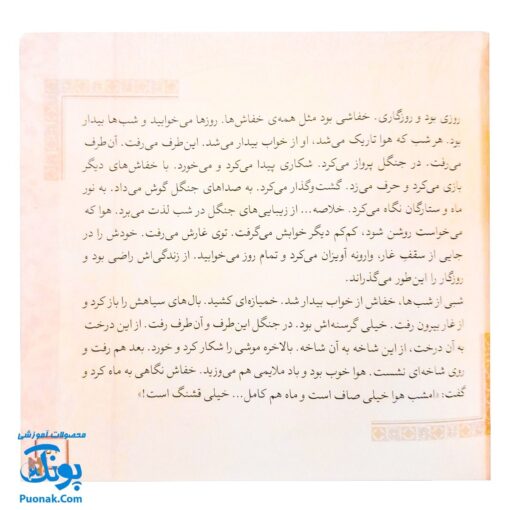 روزی بود و روزگاری. خفاشی بود مثل همه‌ی خفاش‌ها. روزها می‌خوابید و شب‌ها بیدار
بود. هر شب که هوا تاریک می‌شد، او از خواب بیدار می‌شد. این‌طرف می‌رفت. آن‌طرف
می‌رفت. در جنگل پرواز می‌کرد. شکاری پیدا می‌کرد و می‌خورد. با خفاش‌های دیگر
بازی می‌کرد و حرف می‌زد. گشت‌وگذار می‌کرد. به صداهای جنگل گوش می‌داد. به نور
ماه و ستارگان نگاه می‌کرد. خلاصه... از زیبایی‌های جنگل در شب لذت می‌برد. هوا که
می‌خواست روشن شود، کم‌کم دیگر خوابش می‌گرفت. توی غارش می‌رفت. خودش را در
جایی از سقف غار، وارونه آویزان می‌کرد و تمام روز می‌خوابید. از زندگی‌اش راضی بود و
روزگار را این‌طور می‌گذراند.
شبی از شب‌ها، خفاش از خواب بیدار شد. خمیازه‌ای کشید. بال‌های سیاهش را باز کرد و
از غار بیرون رفت. خیلی گرسنه‌اش بود. در جنگل این‌طرف و آن‌طرف رفت. از این درخت
به آن درخت، از این شاخه به آن شاخه. بالاخره موشی را شکار کرد و خورد. بعد هم رفت و
روی شاخه‌ای نشست. هوا خوب بود و باد ملایمی هم می‌وزید. خفاش نگاهی به ماه کرد و
گفت: «امشب هوا خیلی صاف است و ماه هم کامل... خیلی قشنگ است!»
محصولات آموزشی
پونک
Puonak.Com